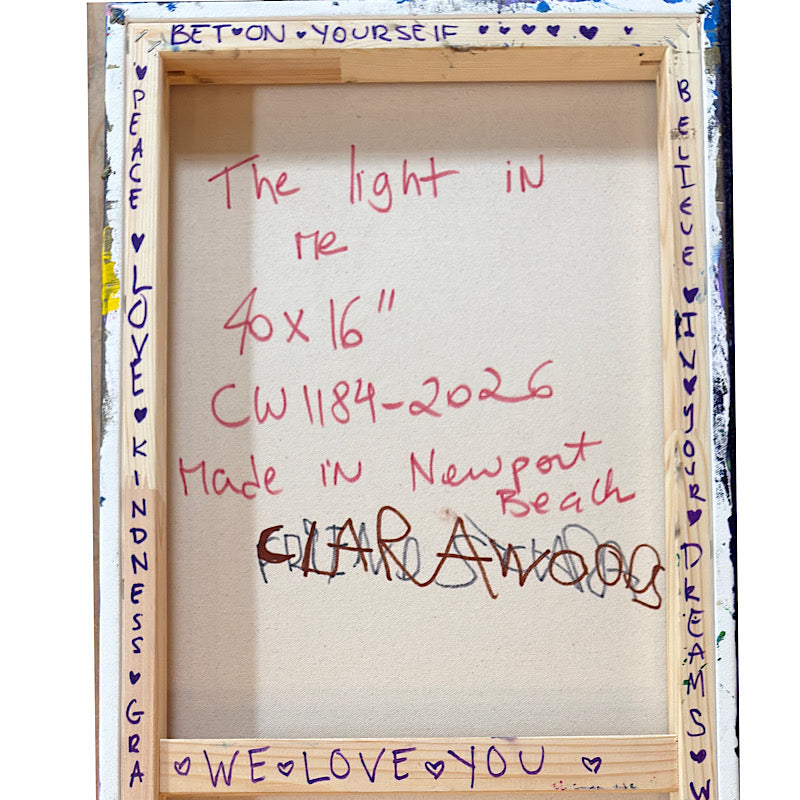 BET ON YOURSELF
PEACE LOVE KINDNESS GRA
BELIEVE IN YOUR DREAMS W
The light iN
Me
40x16"
CW1184-2026
Made iN Newport
Beach
CLARAWOODS
WE LOVE YOU